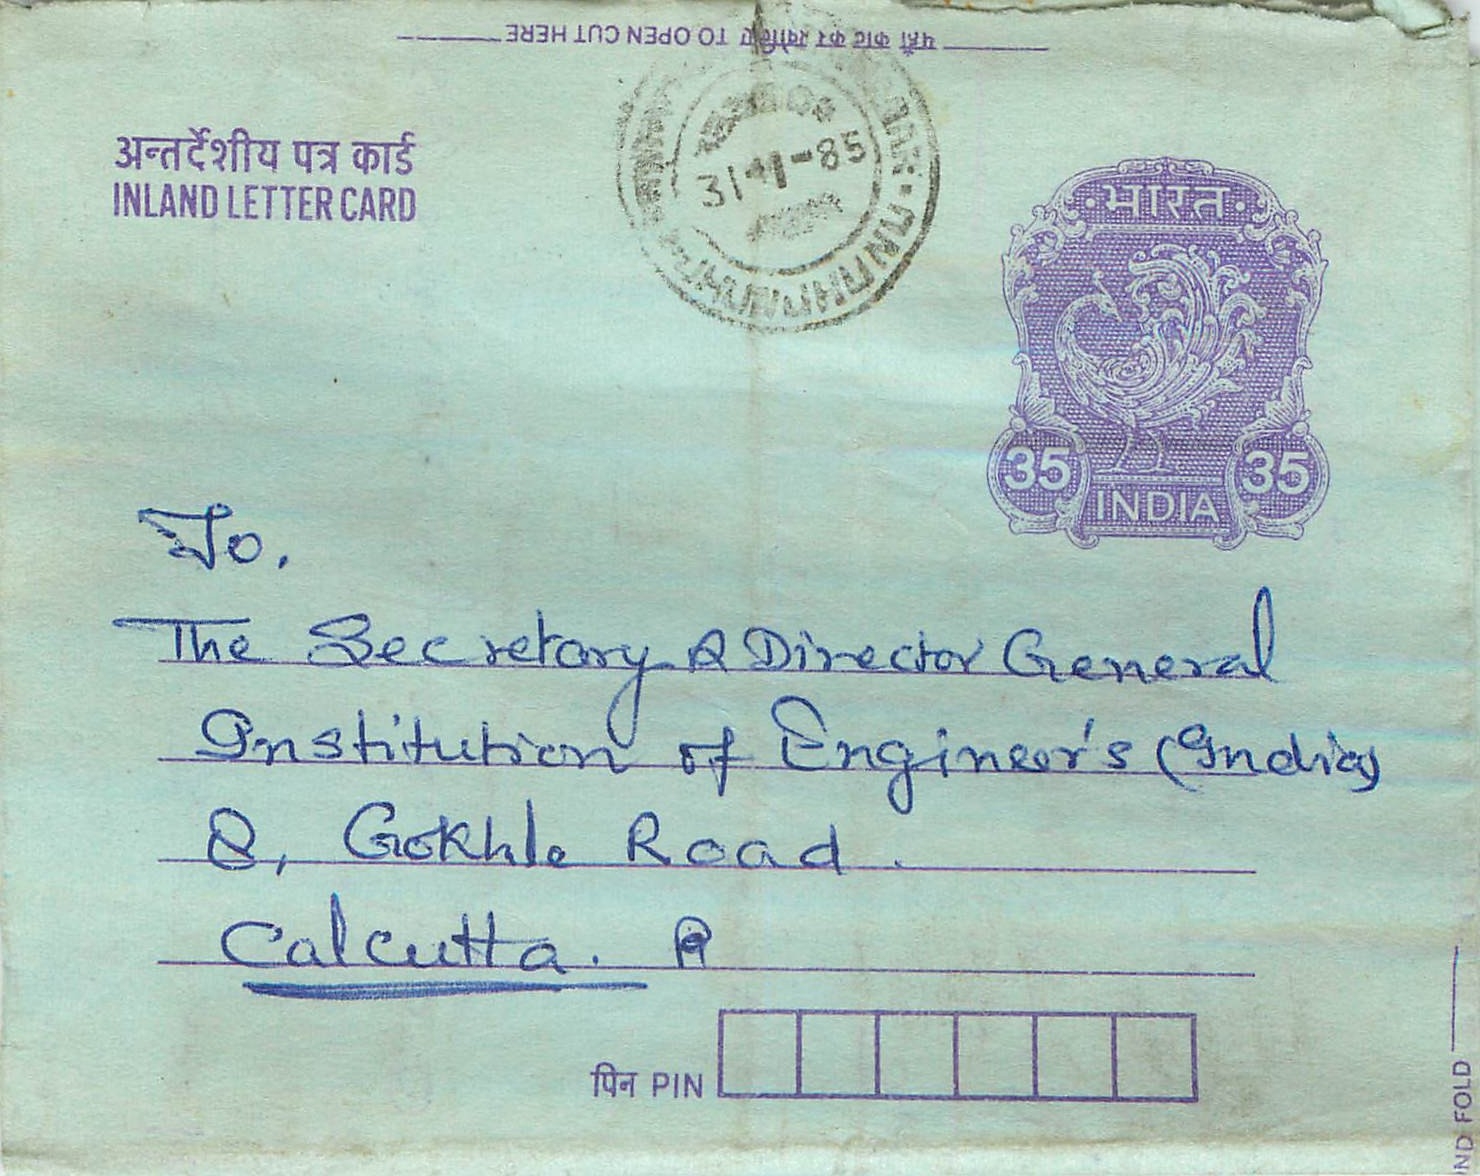 यहाँ काट कर खोलिए TO OPEN CUT HERE
अन्तर्देशीय पत्र कार्ड
INLAND LETTER CARD
31-1-85
भारत
35 35
INDIA
To,
The Secretary & Director General
Institution of Engineer's (India)
8, Gokhle Road.
Calcutta.
पिन PIN
ND FOLD